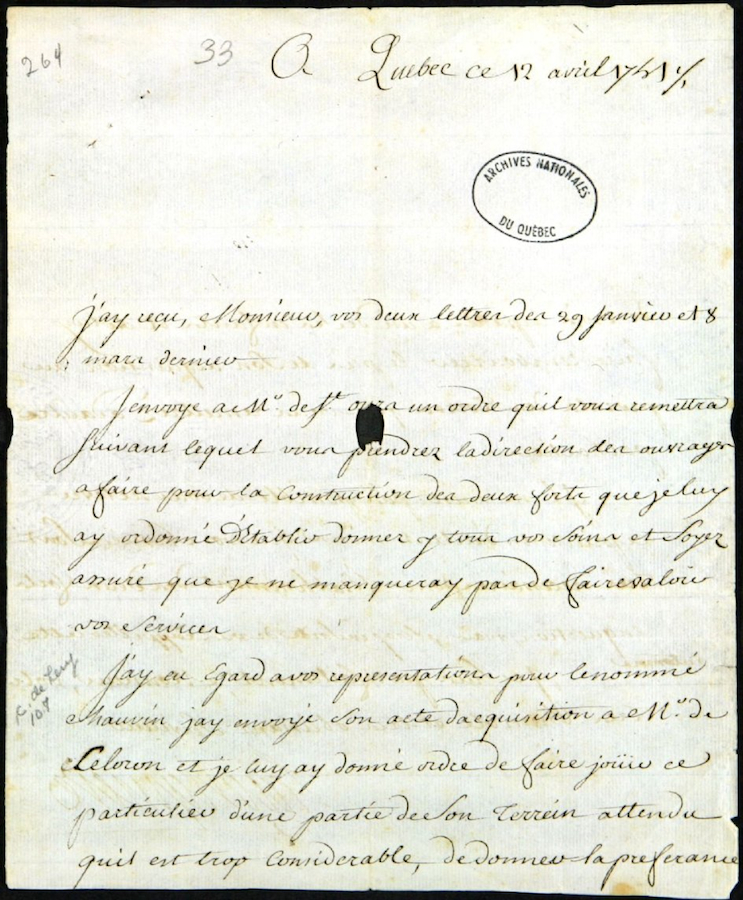 264
33
A Quebec ce 12 avril 1751 ./.
ARCHIVES NATIONALES
DU QUÉBEC
J'ay reçu, Monsieur, vos deux lettres des 29 Janvier et 8
mars dernier
J'envoye a Mr. de St. ours un ordre quil vous remettra
suivant lequel vous prendrez la direction des ouvrages
a faire pour la Construction des deux forts que je luy
ay ordonné d'Etablir donner y tous vos soins et soyez
assuré que je ne manqueray pas de faire valoir
vos services
J'ay eu Egard a vos representations pour le nommé
Chauvin jay envoyé son acte dacquisition a Mr. de
Celoron et je luy ay donné ordre de faire joüir ce
particulier d'une partie de son Terrein attendu
quil est trop Considerable, de donner la preferance
C. de Lery
108